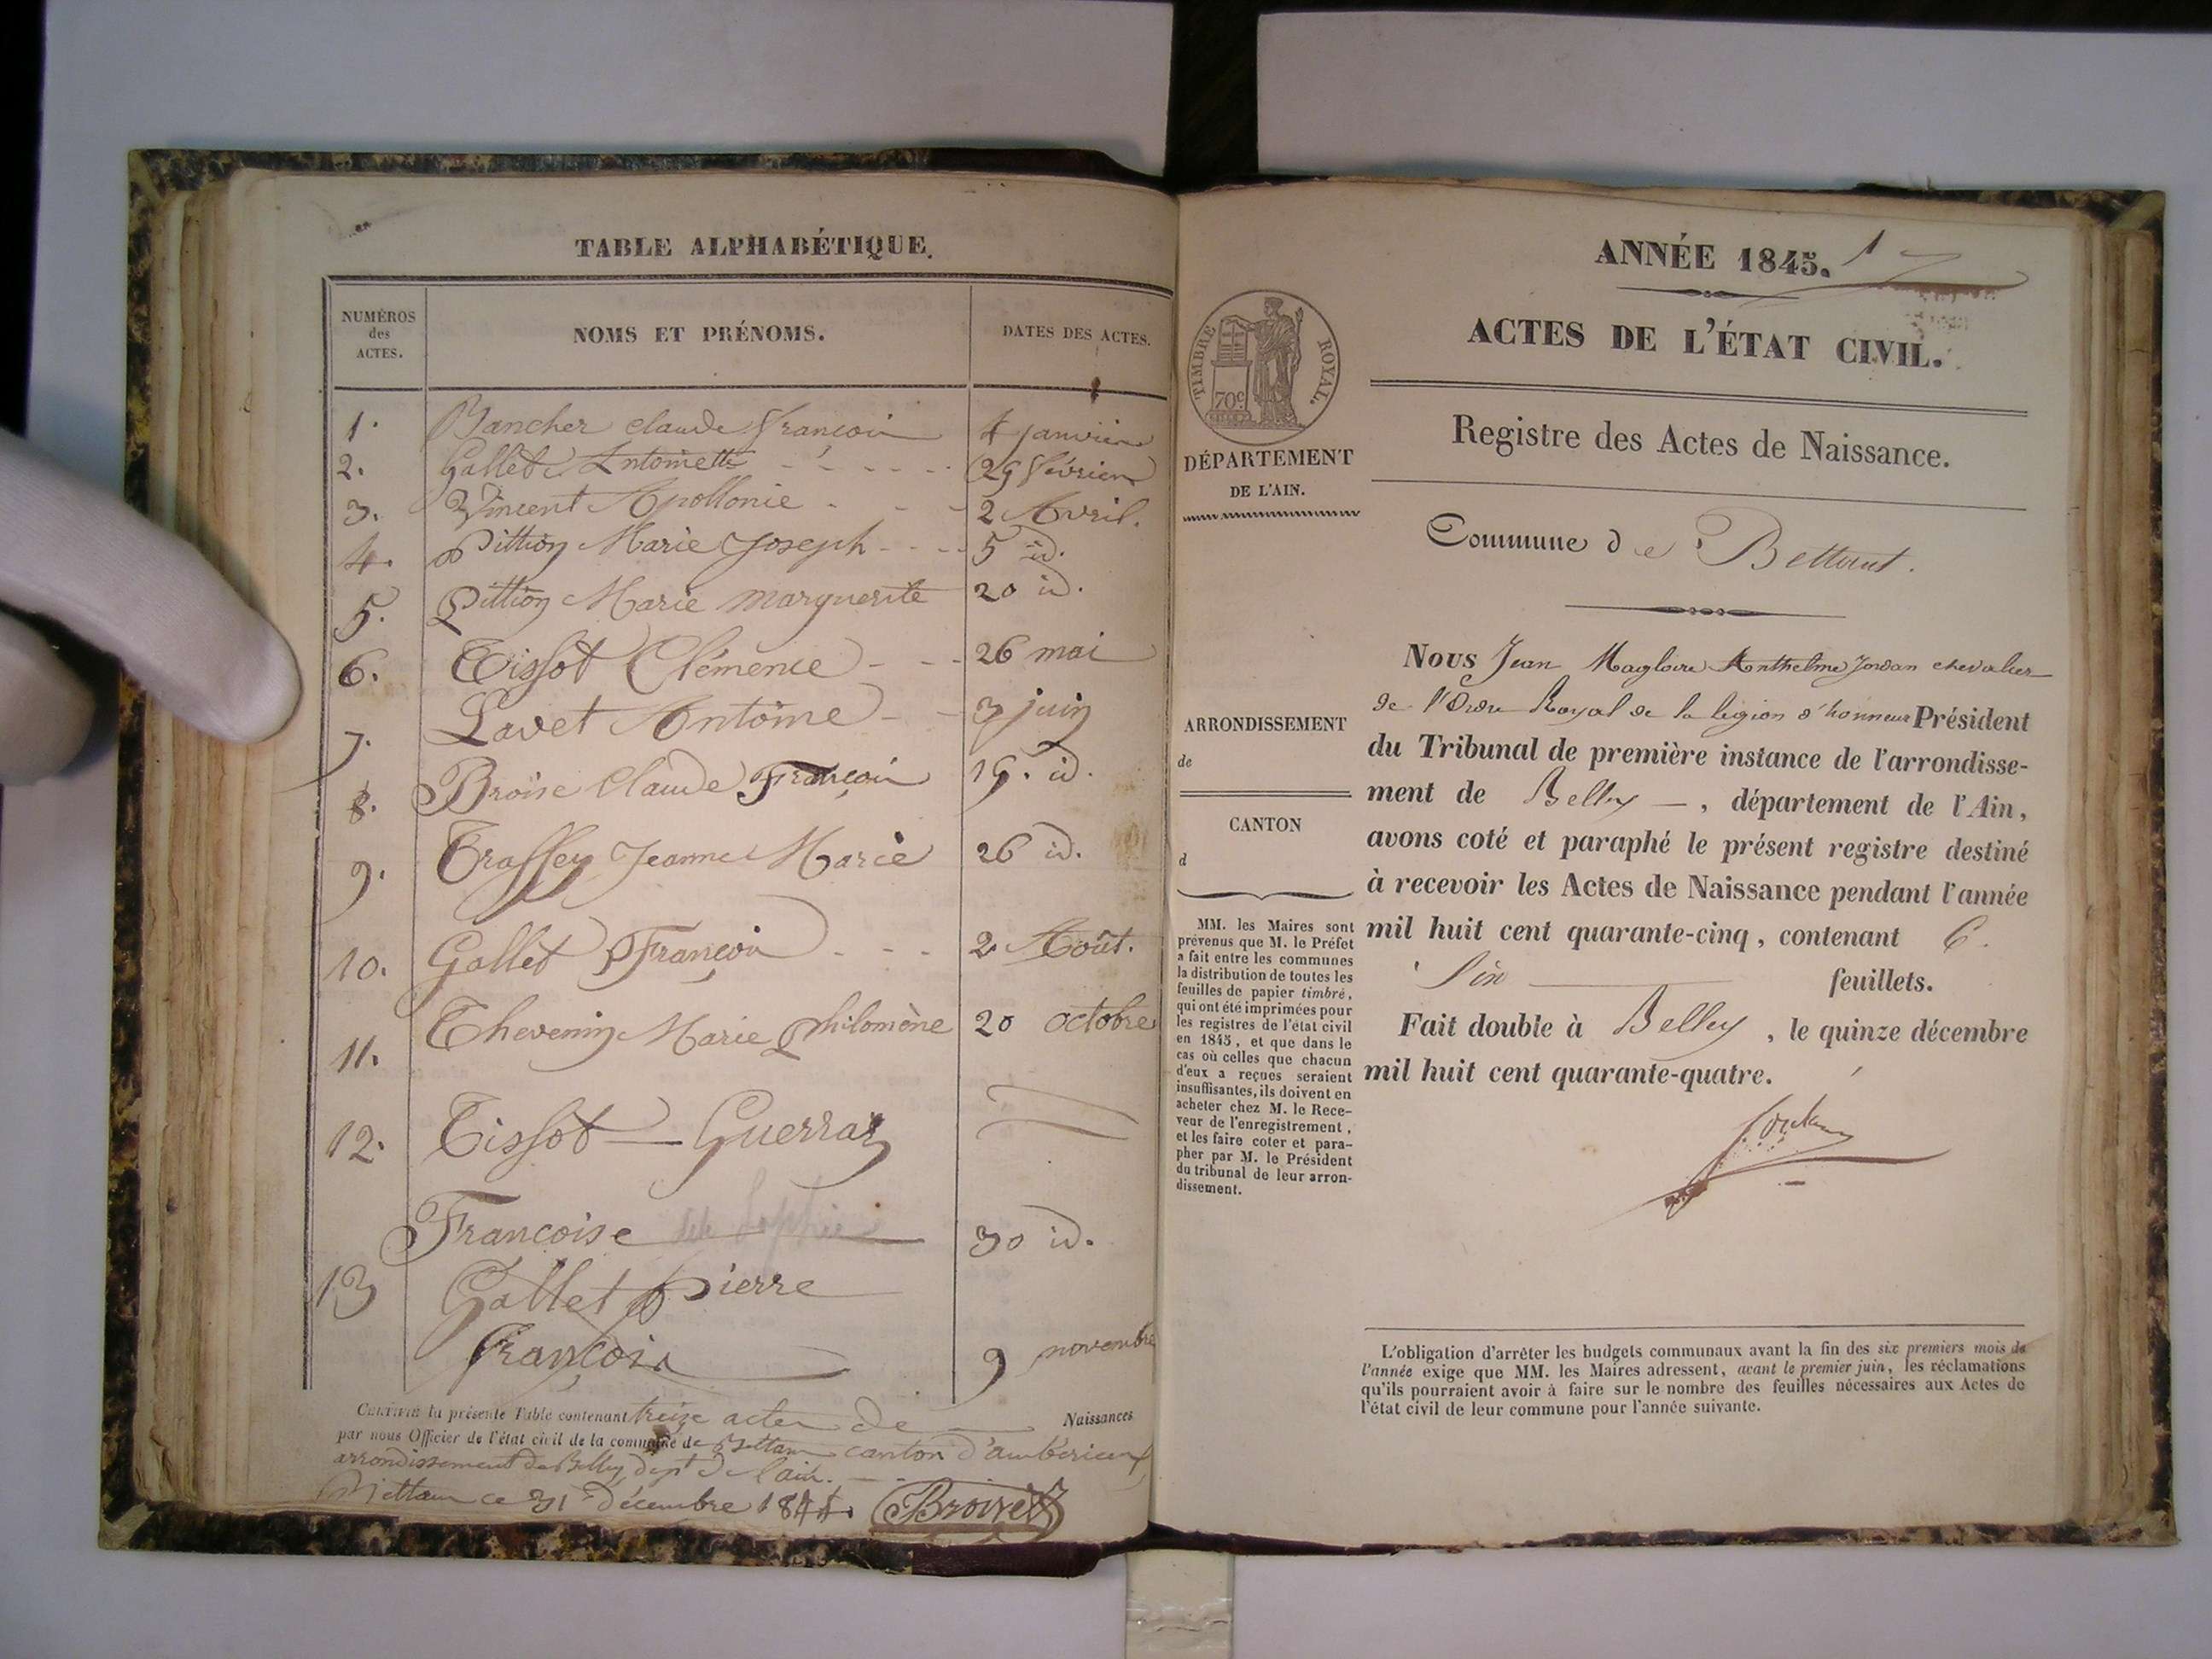 TABLE ALPHABÉTIQUE.
NUMÉROS
des
ACTES.
NOMS ET PRÉNOMS.
DATES DES ACTES.
1. Bancher claude françois 4 janvier
2. Gallet Antoinette 29 février
3. Vincent Apollonie 2 Avril.
4. Pittion Marie Joseph 5 id.
5. Pittion Marie marguerite 20 id.
6. Tissot Clémence 26 mai
7. Lavet Antoine 3 juin
8. Broise Claude François 19. id.
9. Traffey Jeanne Marie 26 id.
10. Gallet François 2 Août.
11. Thevenin Marie philomène 20 octobre
12. Tissot Guerraz
Francoise dite Sophie 30 id.
13 Gallet Pierre
françois 9 novembre
CERTIFIÉE la présente Table contenant treize actes de Naissances
par nous Officier de l'état civil de la commune de Bettant canton d'ambérieux
arrondissement de Belley, dept de l'ain.
Bettant ce 31 décembre 1844.
ANNÉE 1845. 1
ACTES DE L'ÉTAT CIVIL.
Registre des Actes de Naissance.
TIMBRE ROYAL.
70c
DÉPARTEMENT
DE L'AIN.
Commune de Bettant.
ARRONDISSEMENT
de
CANTON
d
MM. les Maires sont
prévenus que M. le Préfet
a fait entre les communes
la distribution de toutes les
feuilles de papier timbré,
qui ont été imprimées pour
les registres de l'état civil
en 1845, et que dans le
cas où celles que chacun
d'eux a reçues seraient
insuffisantes, ils doivent en
acheter chez M. le Rece-
veur de l'enregistrement,
et les faire coter et para-
pher par M. le Président
du tribunal de leur arron-
dissement.
Nous Jean Magloire Anthelme Jordan chevalier
de l'Ordre Royal de la legion d'honneur Président
du Tribunal de première instance de l'arrondisse-
ment de Belley, département de l'Ain,
avons coté et paraphé le présent registre destiné
à recevoir les Actes de Naissance pendant l'année
mil huit cent quarante-cinq, contenant 6.
Six feuillets.
Fait double à Belley, le quinze décembre
mil huit cent quarante-quatre.
Jordan
L'obligation d'arrêter les budgets communaux avant la fin des six premiers mois de
l'année exige que MM. les Maires adressent, avant le premier juin, les réclamations
qu'ils pourraient avoir à faire sur le nombre des feuilles nécessaires aux Actes de
l'état civil de leur commune pour l'année suivante.